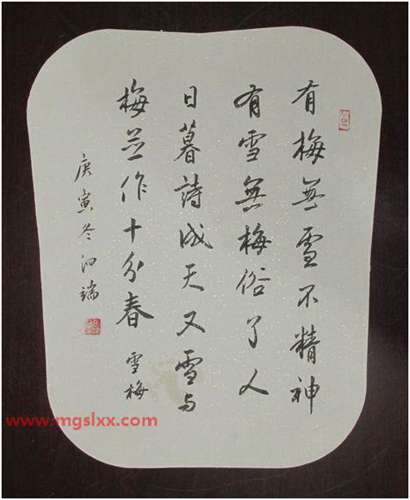 有梅無雪不精神
有雪無梅俗了人
日暮詩成天又雪与
梅並作十分春 雪梅
庚寅冬
www.mgslxx.com